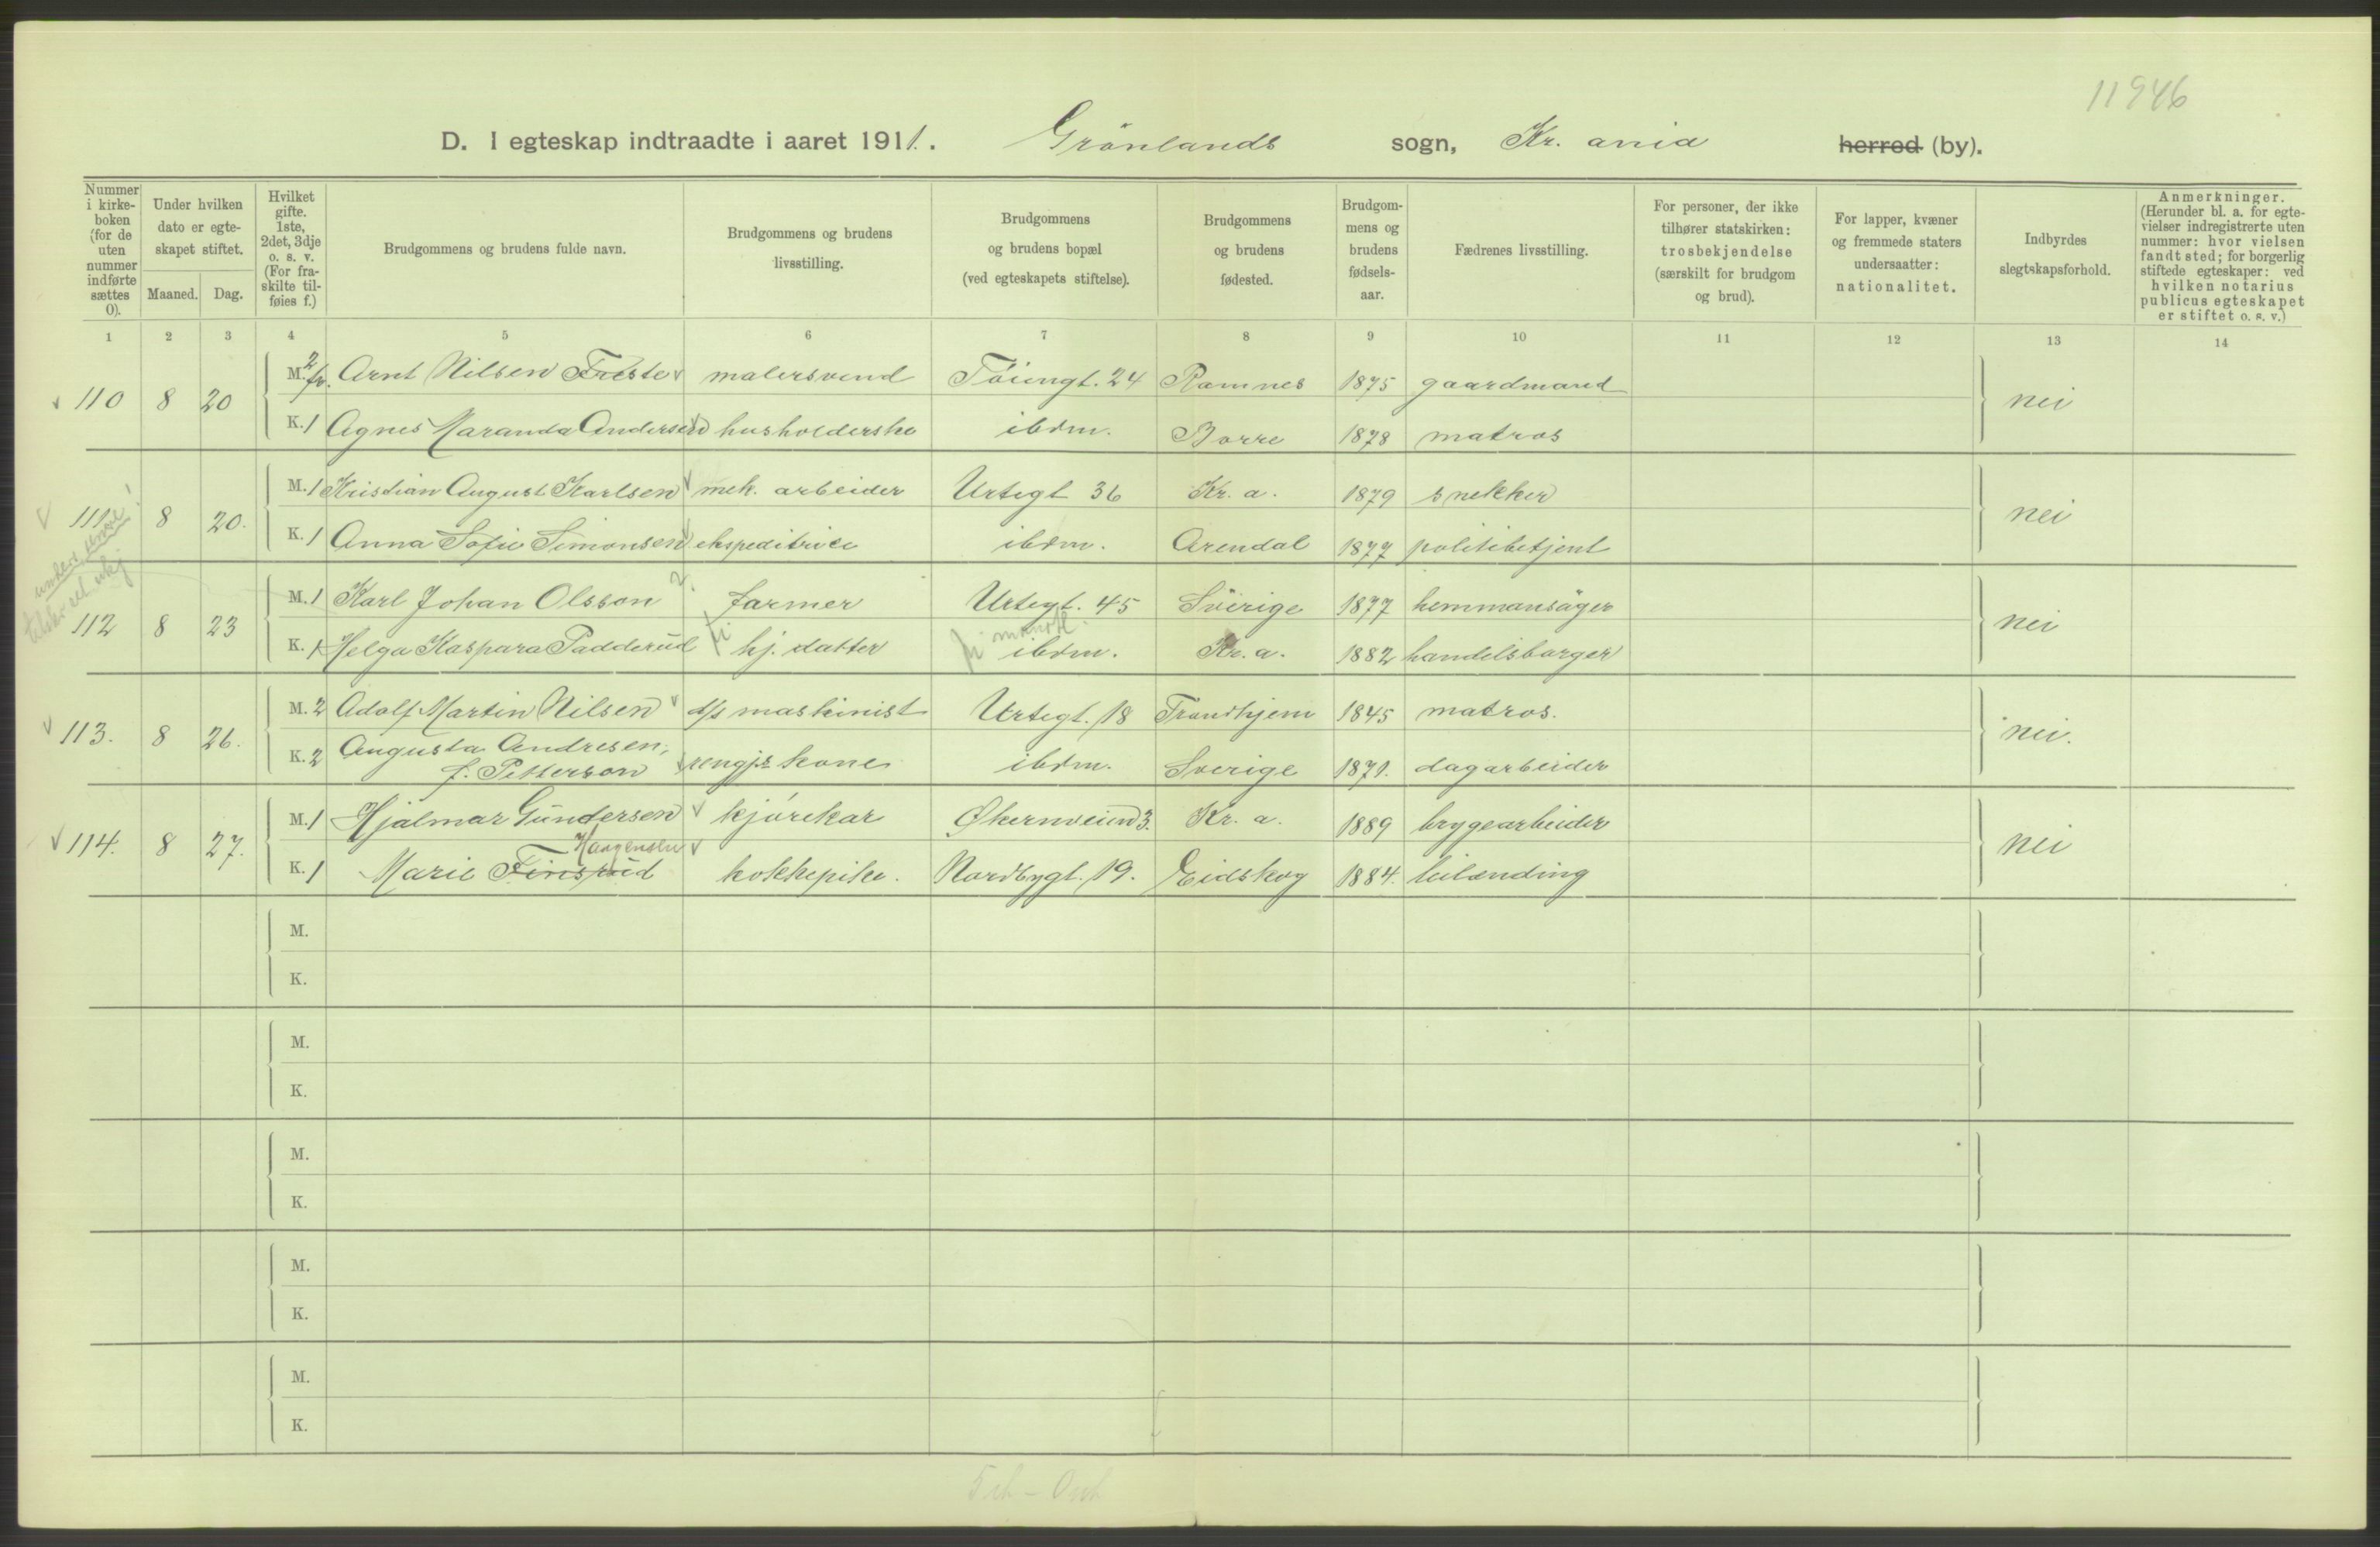 11946
D. I egteskap indtraadte i aaret 1911. Grönlands sogn, Kr. ania herred (by).
Nummer i kirke-boken (for de uten nummer indførte sættes 0).
Under hvilken dato er egte-skapet stiftet.
Maaned. Dag.
Hvilket gifte. 1ste, 2det, 3dje o. s. v. (For fra-skilte til-føies f.)
Brudgommens og brudens fulde navn.
Brudgommens og brudens livsstilling.
Brudgommens og brudens bopæl (ved egteskapets stiftelse).
Brudgommens og brudens fødested.
Brudgom-mens og brudens fødsels-aar.
Fædrenes livsstilling.
For personer, der ikke tilhører statskirken: trosbekjendelse (særskilt for brudgom og brud).
For lapper, kvæner og fremmede staters undersaatter: nationalitet.
Indbyrdes slegtskapsforhold.
Anmerkninger. (Herunder bl. a. for egte-vielser indregistrerte uten nummer: hvor vielsen fandt sted; for borgerlig stiftede egteskaper: ved hvilken notarius publicus egteskapet er stiftet o. s. v.)
1 2 3 4 5 6 7 8 9 10 11 12 13 14
110 8 20 M. 2 fr. Arnt Nilsen Freste malersvend Töiengt. 24 Ramnes 1875 gaardmand nei
K. 1 Agnes Maranda Andersen husholderske ibdm. Borre 1878 matros
111 8 20. M. 1 Kristian August Karlsen mek. arbeider Urtegt 36 Kr. a. 1879 snekker nei
K. 1 Anna Sofie Simonsen ekspeditrice ibdm. Arendal 1877 politibetjent
112 8 23 M. 1 Karl Johan Olsson farmer Urtegt. 45 Sverige 1877 hemmansäger nei
K. 1 Helga Kaspara Padderud hj. datter ibdm. Kr. a. 1882 handelsborger
113. 8 26. M. 2 Adolf Martin Nilsen d/s maskinist Urtegt. 18 Trondhjem 1845 matros. nei.
K. 2 Augusta Andresen,
f. Petterson rengj.s kone ibdm. Sverige 1871. dagarbeider
114. 8 27. M. 1 Hjalmar Gundersen kjörekar Økernveien 3. Kr. a. 1889 bryggearbeider nei
Haagensen
K. 1 Marie Finsrud kokkepike. Nordbygt. 19. Eidskog 1884. leilænding
M.
K.
M.
K.
M.
K.
M.
K.
M.
K.